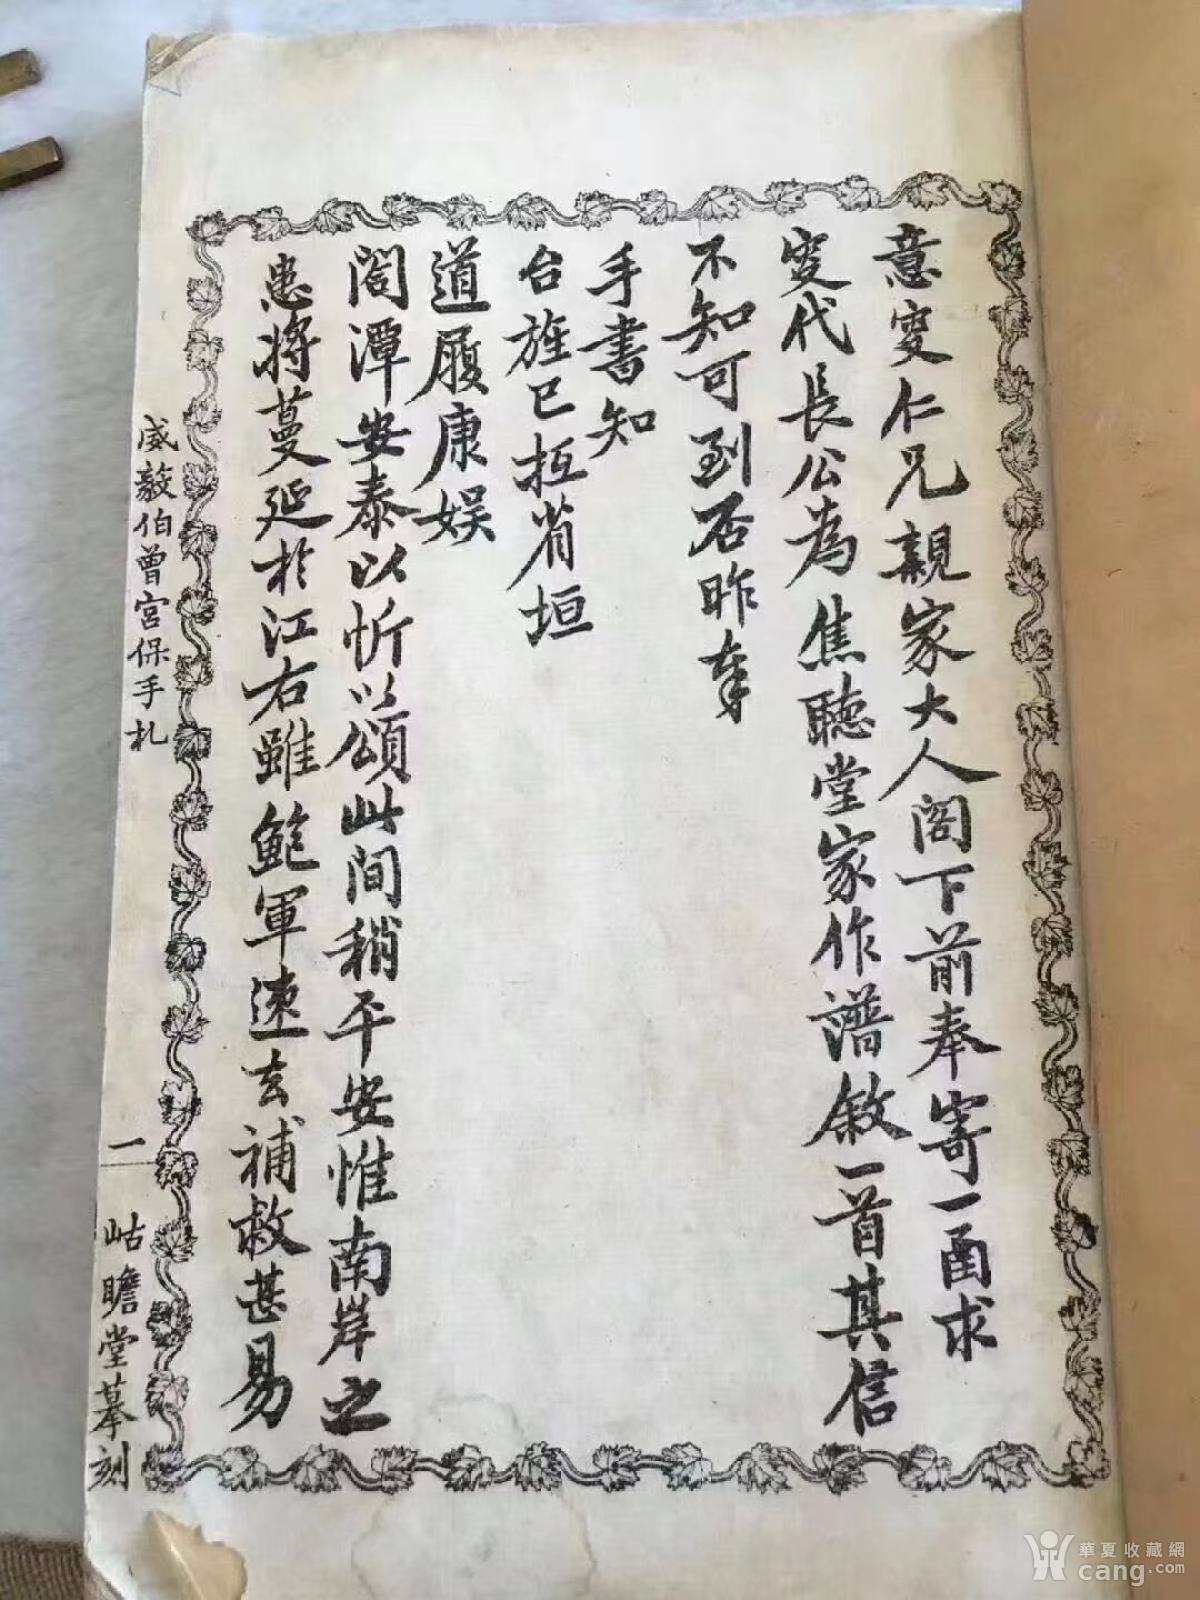 意叜仁兄親家大人閣下前奉寄一函求
叜代長公為焦聽堂家作譜敘一首其信
不知可到否昨奉
手書知
台旌已抵省垣
道履康娛
閤潭安泰以忻以頌此間稍平安惟南岸之
患將蔓延於江右雖鮑軍速去補救甚易
威毅伯曾宮保手札
一
岵瞻堂摹刻
華夏收藏網
cang.com